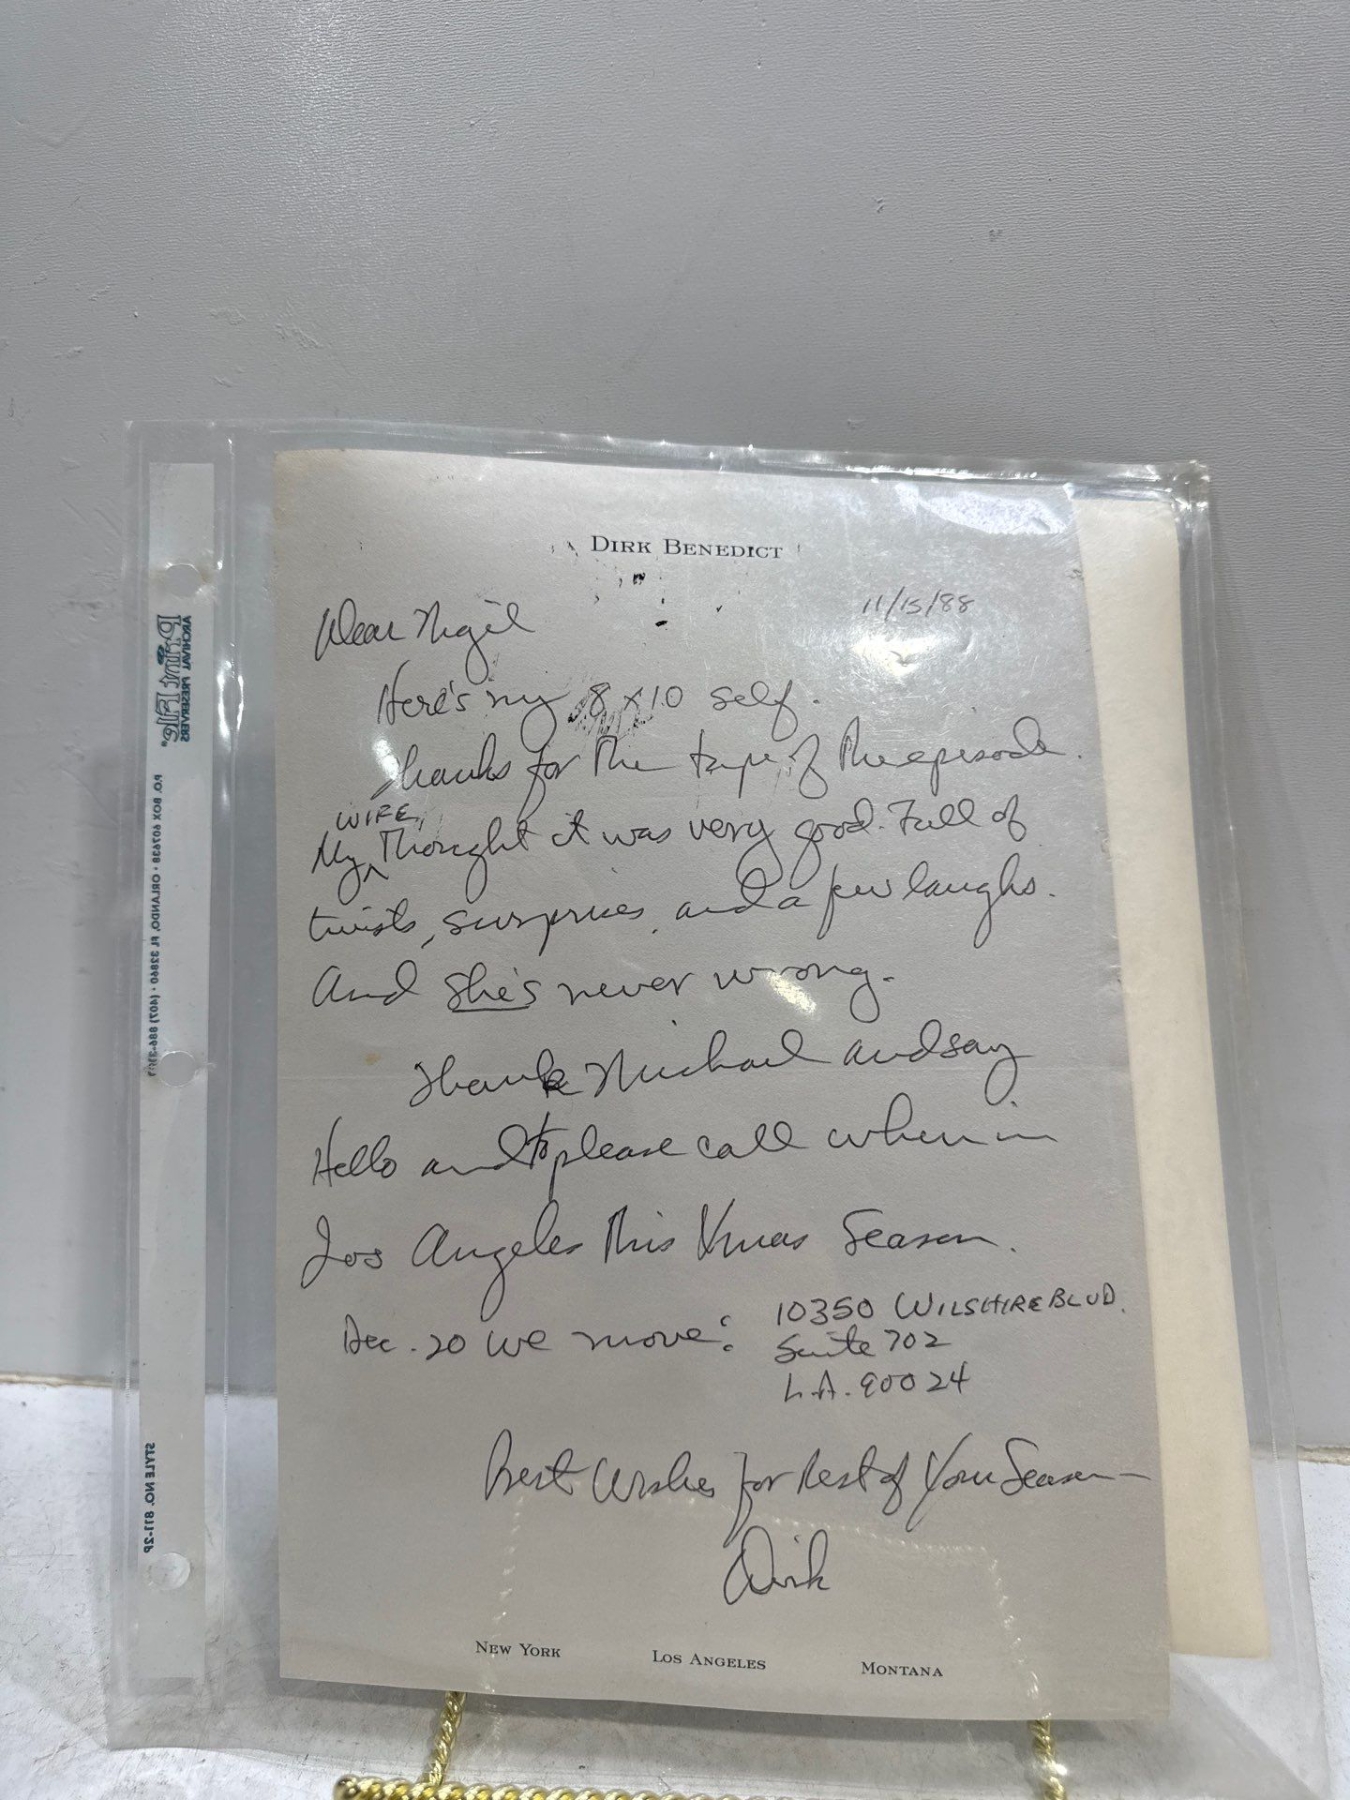 DIRK BENEDICT
11/15/88
Dear Nigil
Here's my 8x10 self.
Thanks for the tape of the episode.
WIFE,
My ^ Thought it was very good. Full of
twists, surprises, and a few laughs.
And She's never wrong.
Thank Michael and say
Hello and to please call when in
Los Angeles this Xmas Season.
Dec. 20 we move: 10350 WILSHIRE BLVD.
Suite 702
L.A. 90024
Best Wishes for Rest of Your Season—
Dirk
NEW YORK LOS ANGELES MONTANA
Print File®
ARCHIVAL PRESERVERS
P.O. BOX 607638 • ORLANDO, Fl 32860 • (407) 886-
STYLE NO. 811-2P